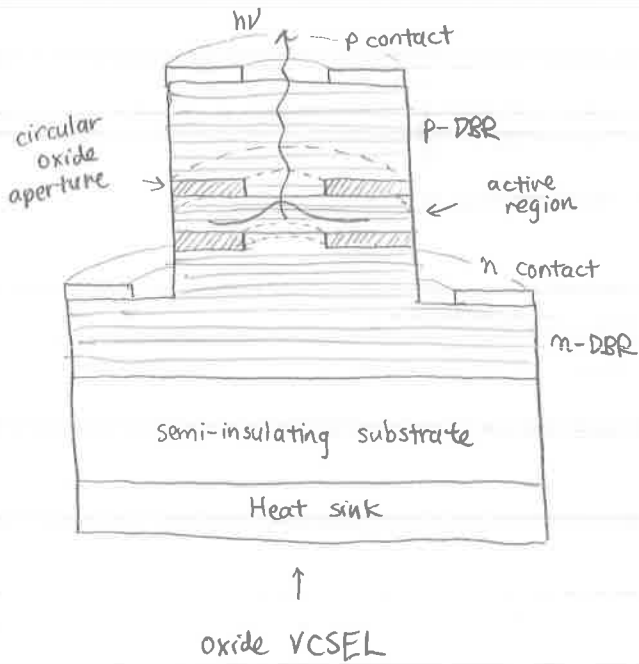 hν
p contact
p-DBR
circular
oxide
aperture
active
region
n contact
n-DBR
semi-insulating substrate
Heat sink
oxide VCSEL